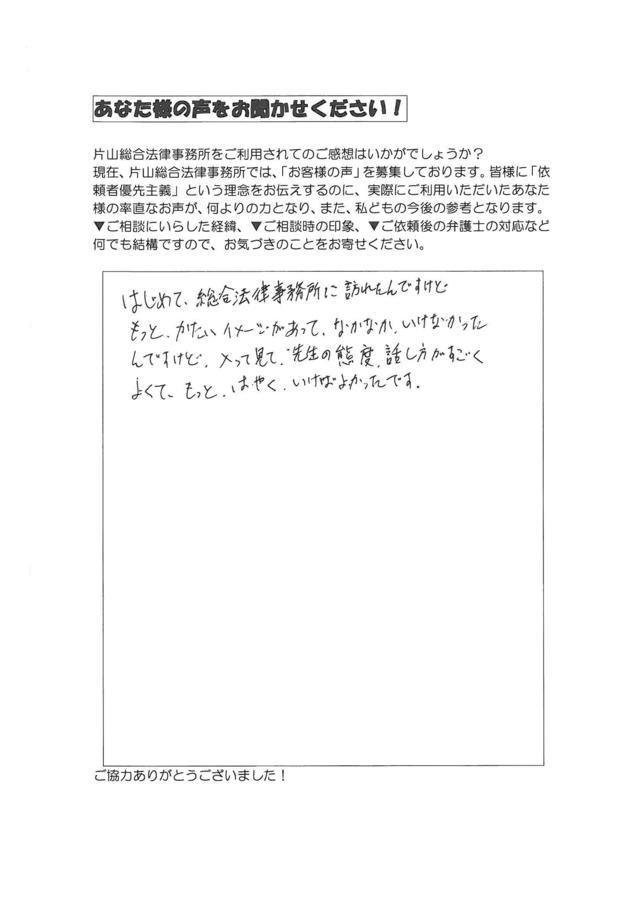 あなた様の声をお聞かせください！
片山総合法律事務所をご利用されてのご感想はいかがでしょうか？
現在、片山総合法律事務所では、「お客様の声」を募集しております。皆様に「依
頼者優先主義」という理念をお伝えするのに、実際にご利用いただいたあなた
様の率直なお声が、何よりの力となり、また、私どもの今後の参考となります。
▼ご相談にいらした経緯、▼ご相談時の印象、▼ご依頼後の弁護士の対応など
何でも結構ですので、お気づきのことをお寄せください。
はじめて、総合法律事務所に訪れたんですけど
もっと、かたいイメージがあって、なかなか、いけなかった
んですけど、入って見て、先生の態度、話し方がすごく
よくて、もっと、はやく、いけばよかったです。
ご協力ありがとうございました！